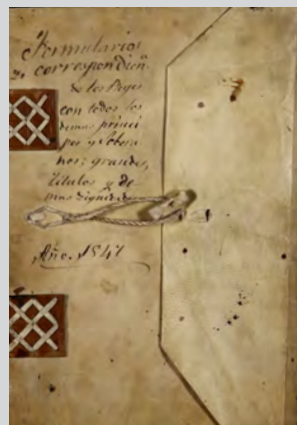 Formularios
y correspondien.
de los Reyes
con todos los
demas princi
pes y sobera
nos; grandes,
titulos y de
mas dignidades
Año. 1547